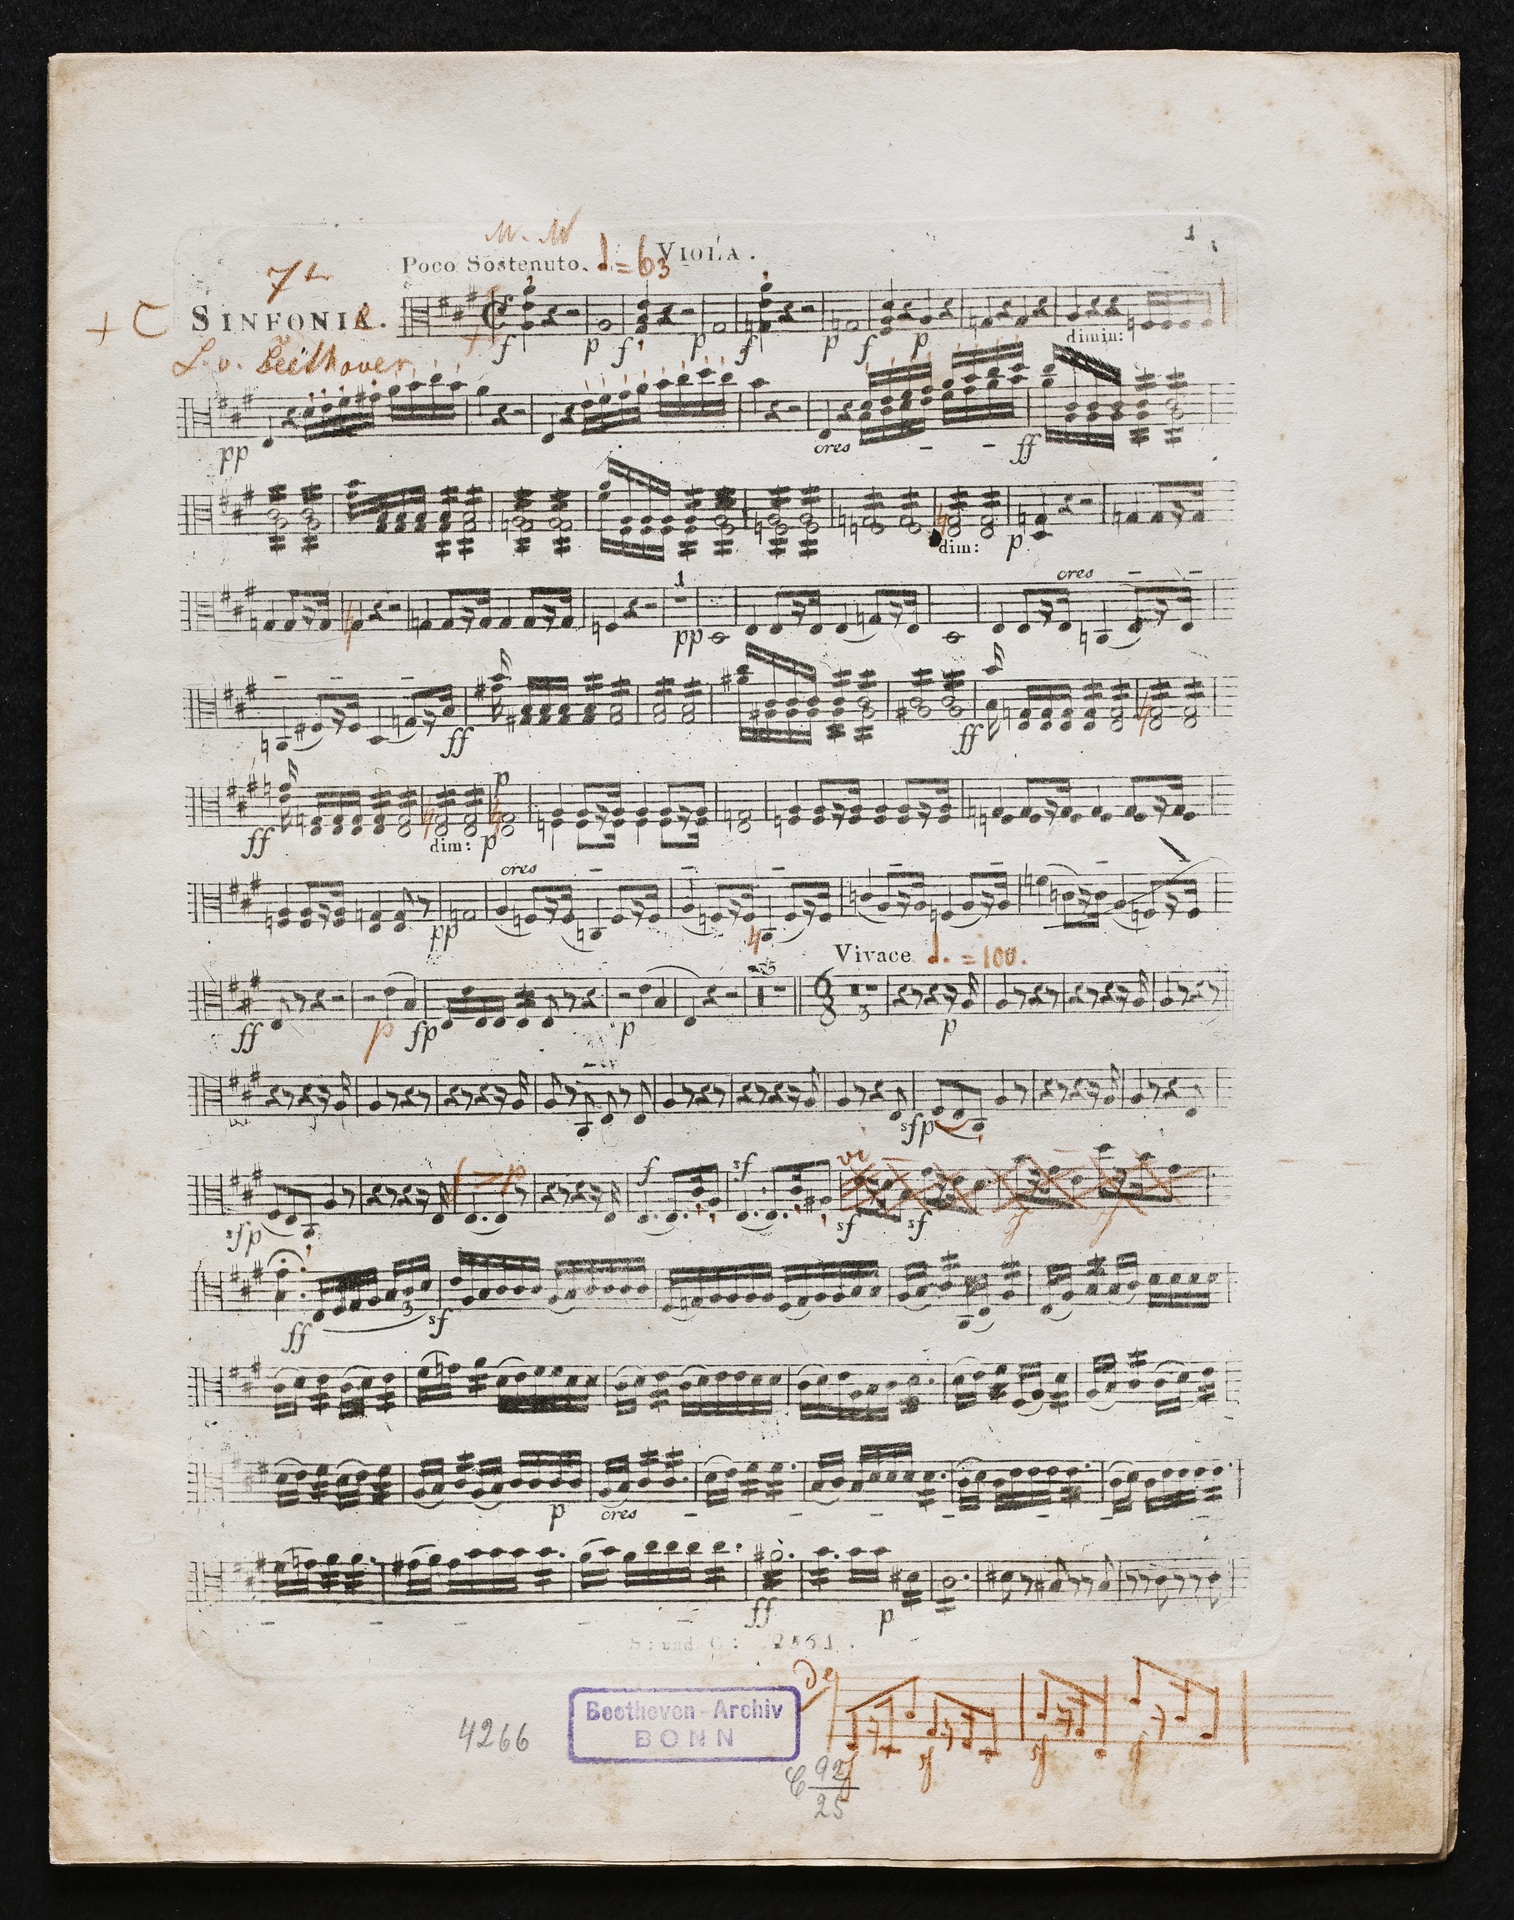 M. M
VIOLA.
1
Poco Sostenuto. = 63
7
+ C SINFONIA.
L. v. Beethoven
f p f p f p f p dimin:
pp cres ff
dim: p
1 pp cres
ff ff
ff dim: p p
pp cres
Vivace = 100.
ff p fp p 3 p
sfp
sfp f p f sf vi sf sf
ff 3 sf
p cres
ff p
S: und C: 2561.
de
Beethoven-Archiv
BONN
4266
C 92/25